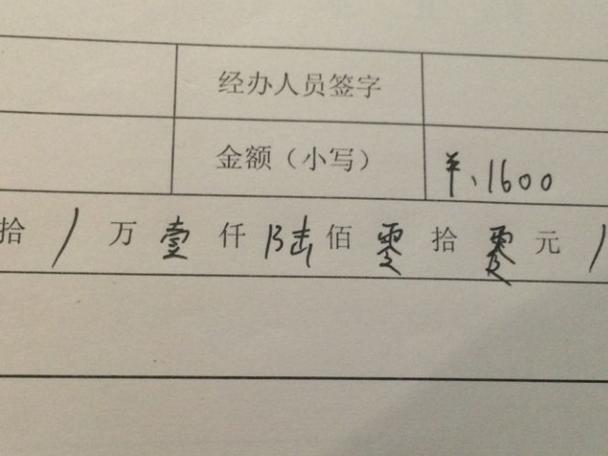 经办人员签字
金额（小写） ¥、1600
拾 / 万 壹 仟 陆 佰 零 拾 零 元 /